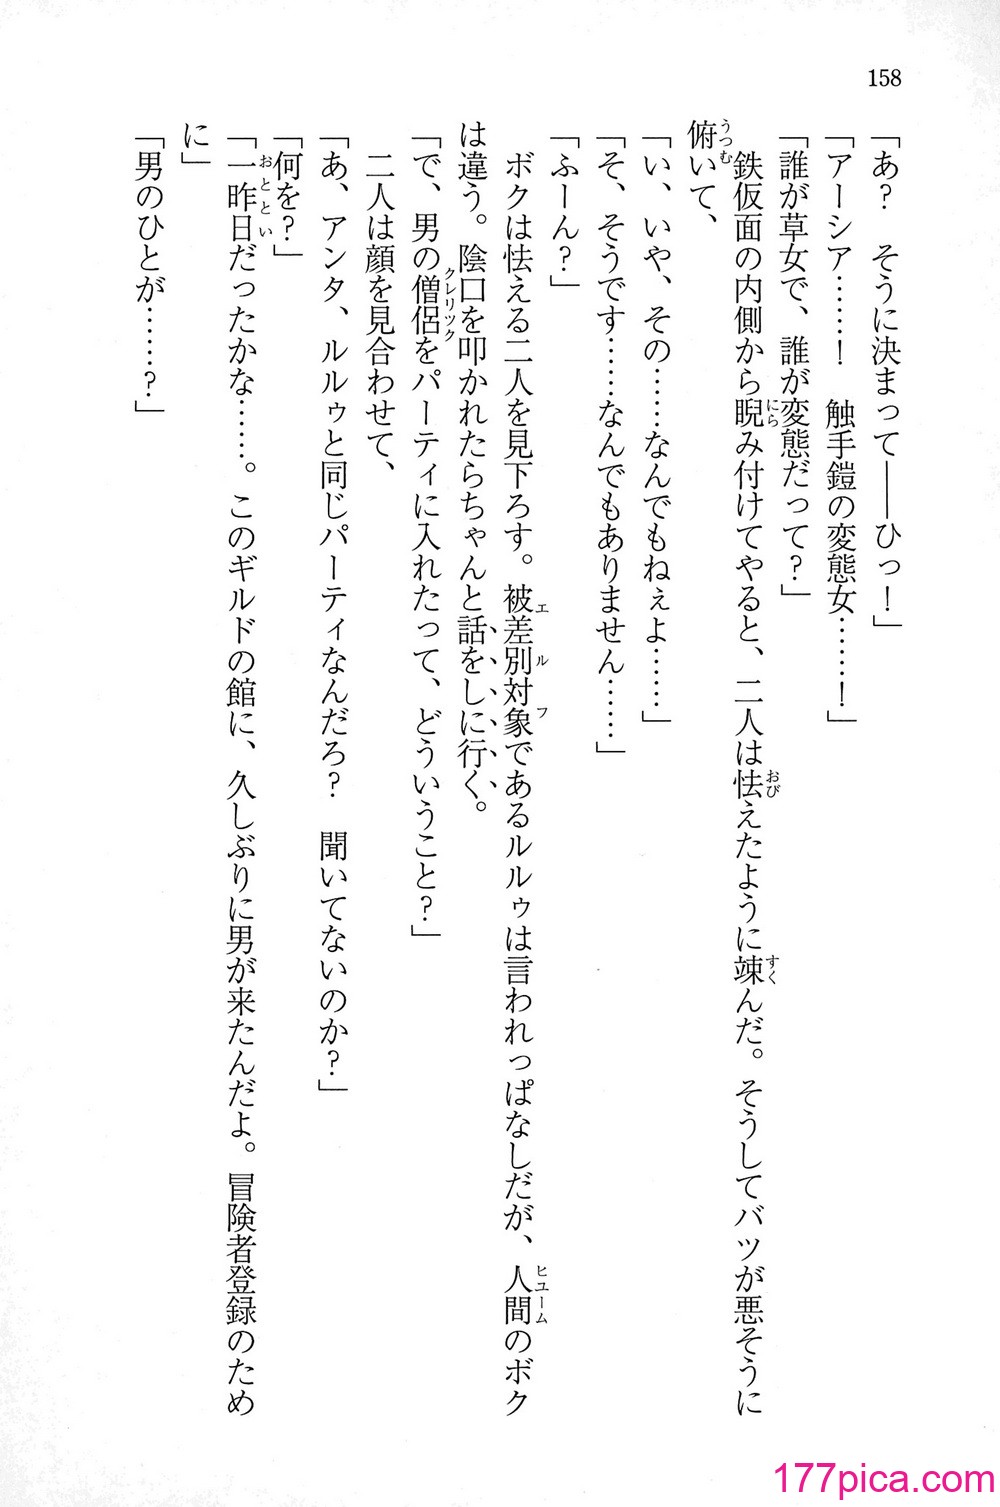 158
「あ？　そうに決まって――ひっ！」
「アーシア……！　触手鎧の変態女……！」
「誰が草女で、誰が変態だって？」
　鉄仮面の内側から睨み付けてやると、二人は怯えたように竦んだ。そうしてバツが悪そうに
俯いて、
「い、いや、その……なんでもねぇよ……」
「そ、そうです……なんでもありません……」
「ふーん？」
　ボクは怯える二人を見下ろす。被差別対象であるルルゥは言われっぱなしだが、人間のボク
は違う。陰口を叩かれたらちゃんと話をしに行く。
「で、男の僧侶をパーティに入れたって、どういうこと？」
　二人は顔を見合わせて、
「あ、アンタ、ルルゥと同じパーティなんだろ？　聞いてないのか？」
「何を？」
「一昨日だったかな……。このギルドの館に、久しぶりに男が来たんだよ。冒険者登録のため
に」
「男のひとが……？」
にら
おび
すく
うつむ
エルフ
ヒューム
クレリック
おととい
177pica.com